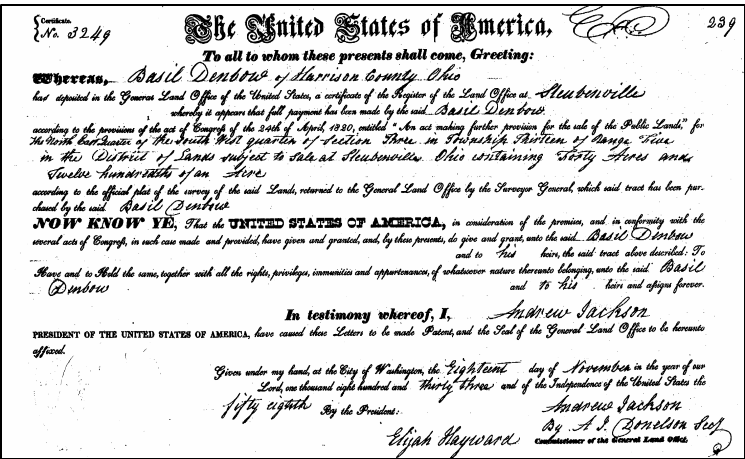 Certificate. No. 3249
The United States of America,
239
To all to whom these presents shall come, Greeting:
Whereas, Basil Denbow of Harrison County Ohio
has deposited in the General Land Office of the United States, a certificate of the Register of the Land Office at Steubenville
whereby it appears that full payment has been made by the said Basil Denbow
according to the provisions of the act of Congress of the 24th of April, 1820, entitled "An act making further provision for the sale of the Public Lands," for
the North East Quarter of the South West quarter of Section Three in Township Thirteen of Range Five
in the District of Lands subject to Sale at Steubenville Ohio containing Forty Acres and
Twelve hundredths of an Acre
according to the official plat of the survey of the said Lands, returned to the General Land Office by the Surveyor General, which said tract has been pur-
chased by the said Basil Denbow
NOW KNOW YE, That the UNITED STATES OF AMERICA, in consideration of the premises, and in conformity with the
several acts of Congress, in such case made and provided, have given and granted, and, by these presents, do give and grant, unto the said Basil Denbow
and to his heirs, the said tract above described: To
Have and to Hold the same, together with all the rights, privileges, immunities and appurtenances, of whatsoever nature thereunto belonging, unto the said Basil
Denbow and to his heirs and assigns forever.
In testimony whereof, I, Andrew Jackson
PRESIDENT OF THE UNITED STATES OF AMERICA, have caused these Letters to be made Patent, and the Seal of the General Land Office to be hereunto
affixed.
Given under my hand, at the City of Washington, the Eighteenth day of November in the year of our
Lord, one thousand eight hundred and thirty three and of the Independence of the United States the
fifty eighth By the President: Andrew Jackson
By A. J. Donelson Secy
Elijah Hayward Commissioner of the General Land Office.